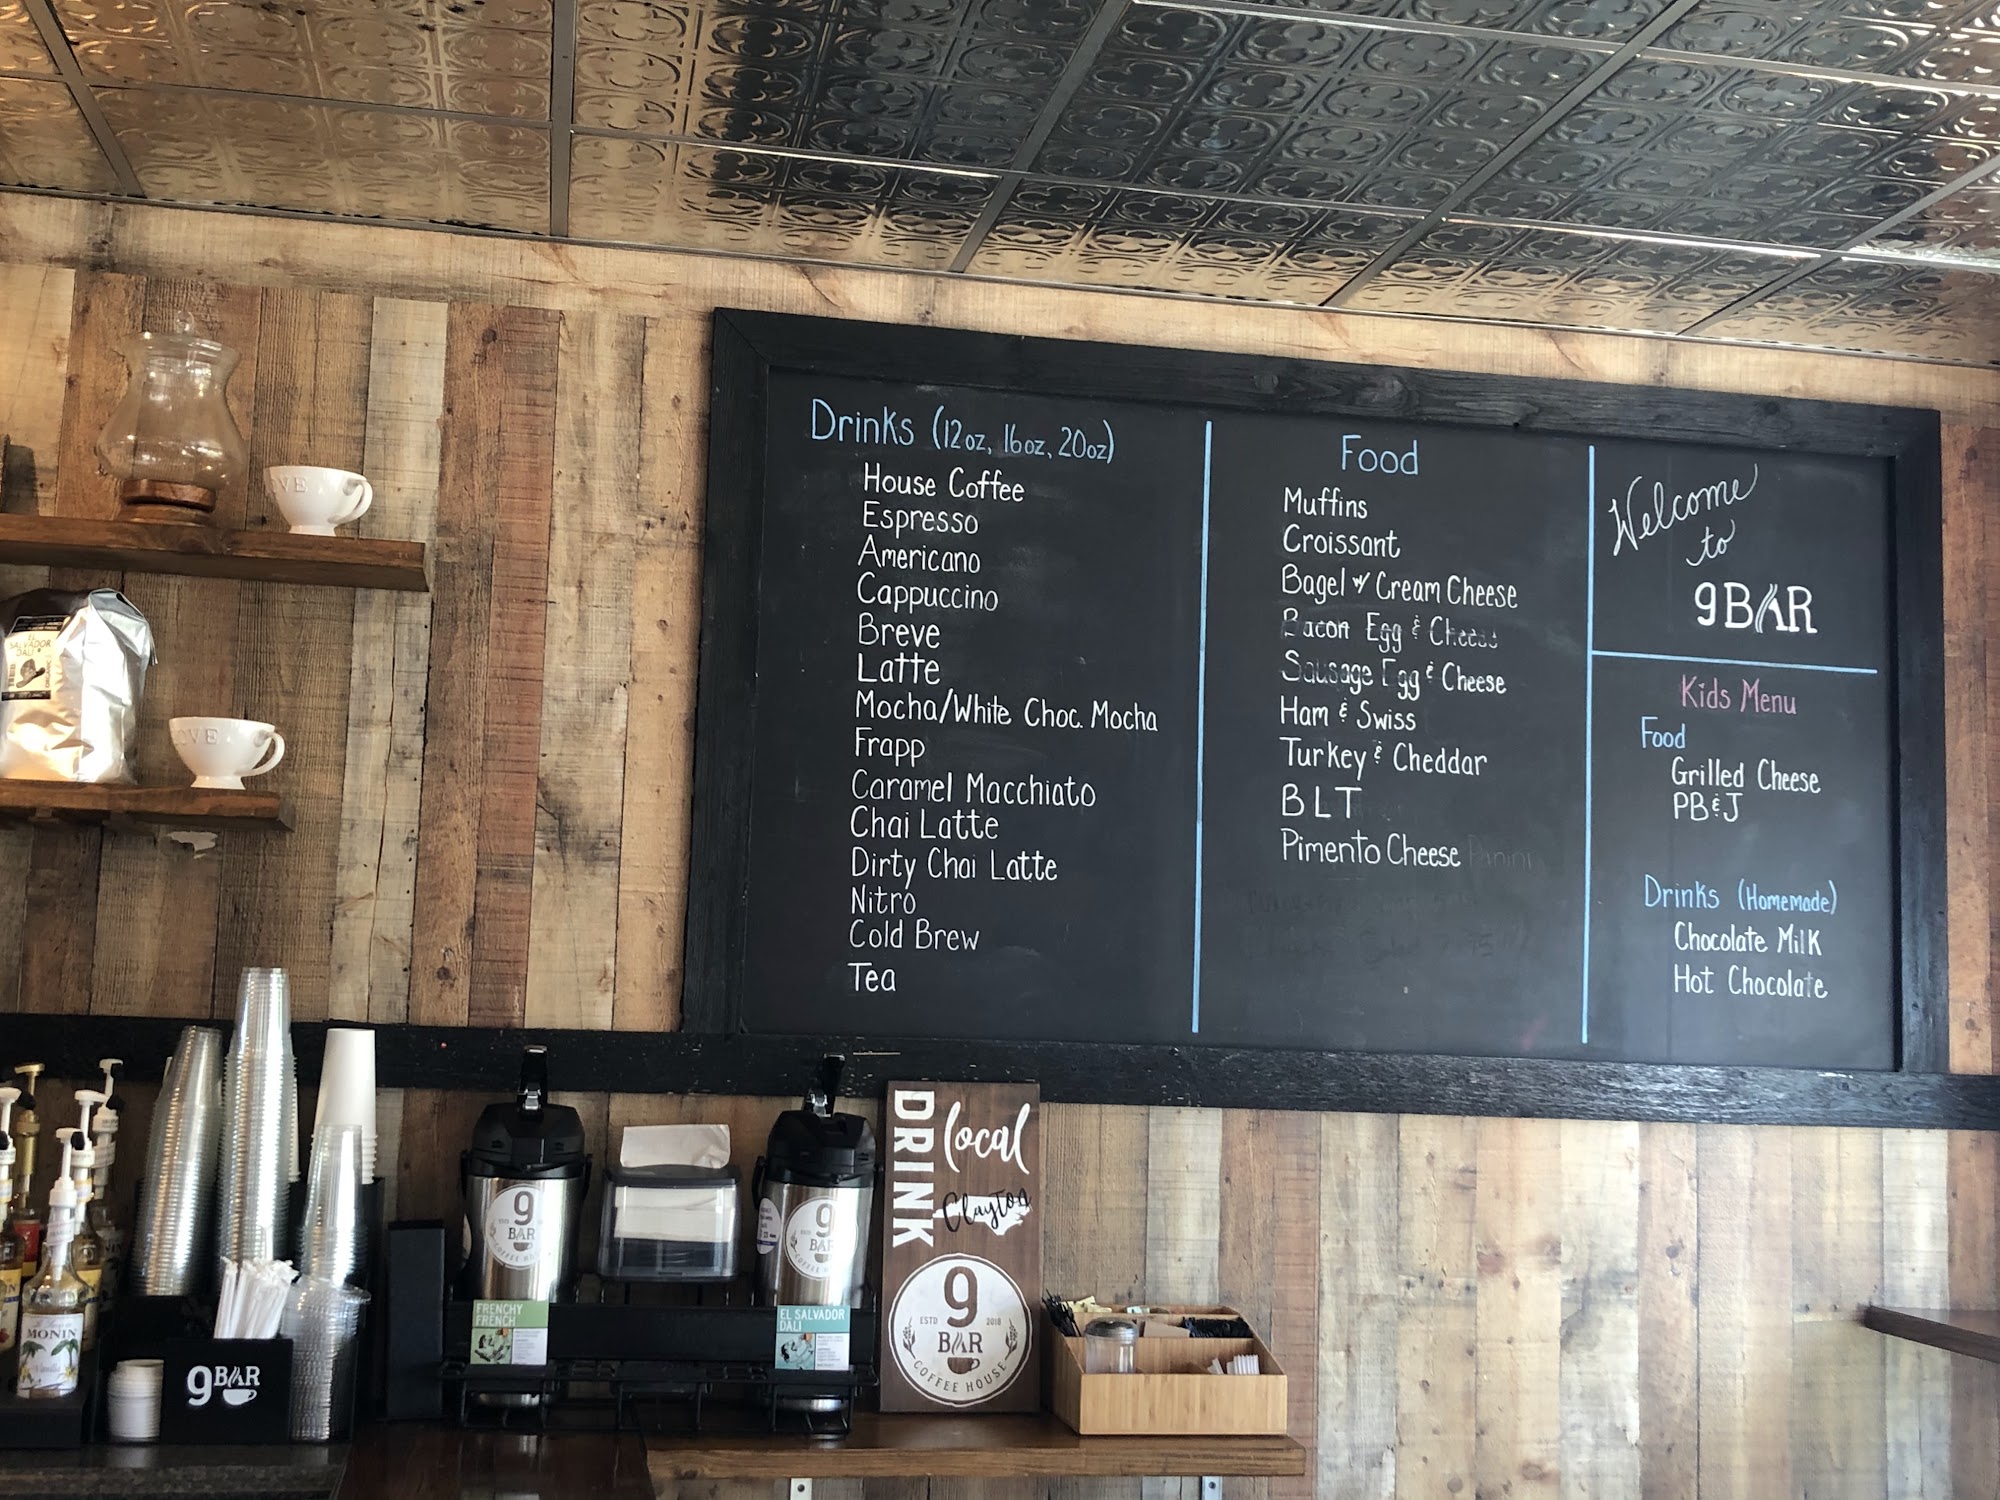 Drinks (12oz, 16oz, 20oz)
House Coffee
Espresso
Americano
Cappuccino
Breve
Latte
Mocha/White Choc. Mocha
Frapp
Caramel Macchiato
Chai Latte
Dirty Chai Latte
Nitro
Cold Brew
Tea
Food
Muffins
Croissant
Bagel w/ Cream Cheese
Bacon Egg & Cheese
Sausage Egg & Cheese
Ham & Swiss
Turkey & Cheddar
BLT
Pimento Cheese Panini
Welcome
to
9BAR
Kids Menu
Food
Grilled Cheese
PB&J
Drinks (Homemade)
Chocolate Milk
Hot Chocolate
OVE
EL
SALVADOR
DALI
OVE
MONIN
Vanilla
9BAR
9
BAR
COFFEE HOUSE
FRENCHY
FRENCH
9
BAR
COFFEE
EL SALVADOR
DALI
DRINK
local
Clayton
9
ESTD 2018
BAR
COFFEE HOUSE